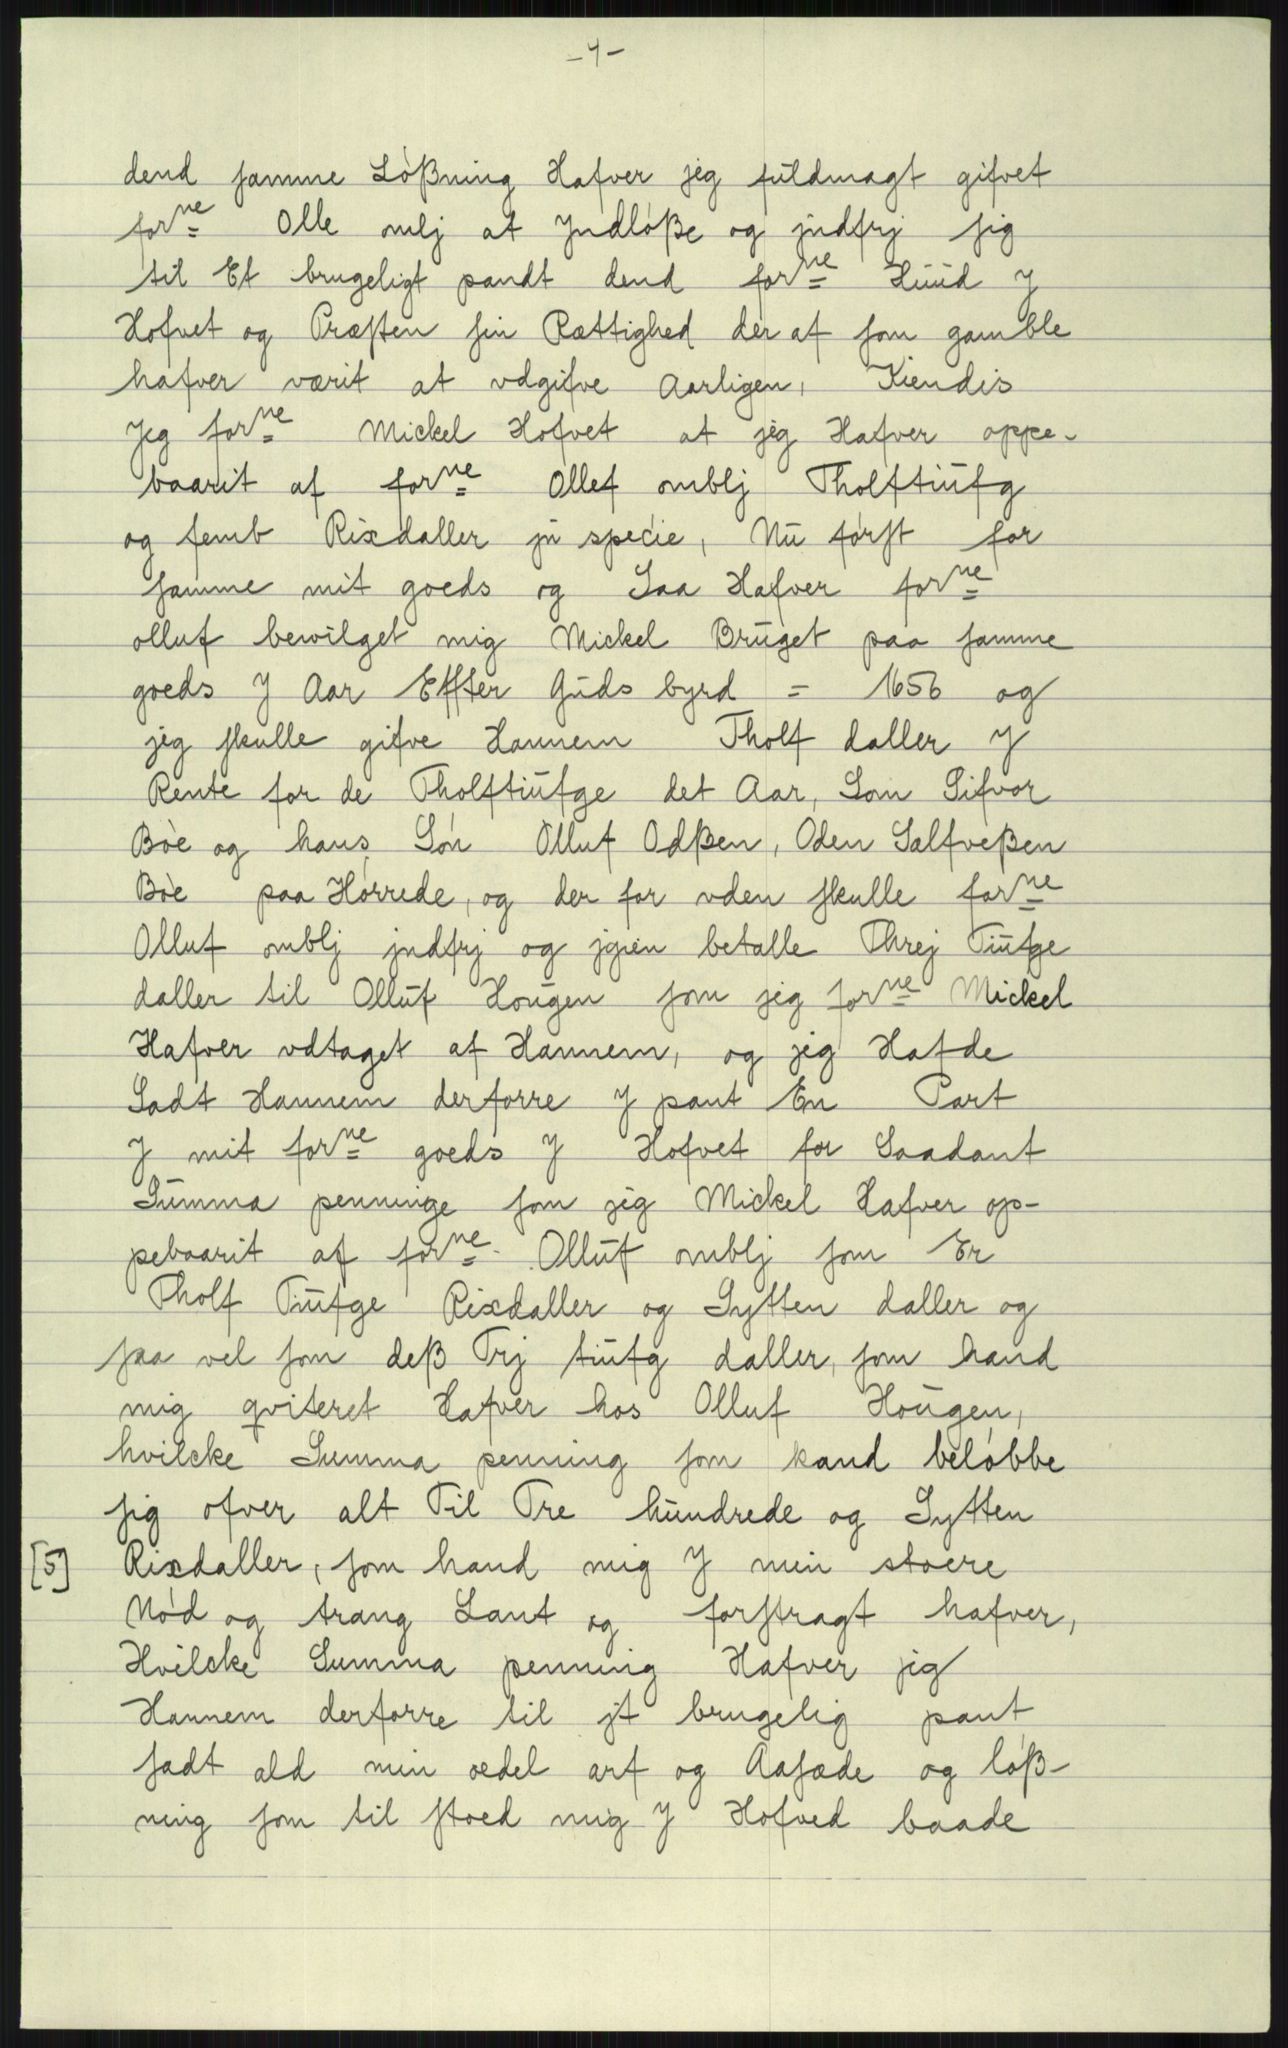 -4-
dend samme Lòßning Hafver jeg fuldmagt gifvet
for<sup>ne</sup> Olle omlj at Jndlòße og jndfrj sig
til Et brugeligt pandt dend for<sup>ne</sup> Huud J
Hofvet og Præsten sin Rættighed der af som gamble
hafver værit at vdgifve Aarligen, Kiendis
Jeg for<sup>ne</sup> Mickel Hofvet at jeg Hafver oppe-
baarit af for<sup>ne</sup> Ollef omblj Tholftiufg
og femb Rixdaller jn specie, Nu fòrst for
samme mit goeds og Saa Hafver for<sup>ne</sup>
olluf bewilget mig Mickel Bruget paa samme
goeds J Aar Effter Guds byrd = 1656 og
jeg skulle gifve Hannem Tholf daller J
Rente for de Tholftiufge det Aar, Som Sifvor
Bòe og hans Sòn Olluf Odßen, Oden Salfveßen
Bòe paa Hòrrede, og der for vden skulle for<sup>ne</sup>
Olluf omblj jndfrj og jgien betalle Threj Tiufge
daller til Olluf Hougen som jeg for<sup>ne</sup> Mickel
Hafver vdtaget af Hannem, og jeg Hafde
Sadt Hannem derforre J pant En Part
J mit for<sup>ne</sup> goeds J Hofvet for Saadant
Summa penninge som jeg Mickel Hafver op-
pebaarit af for<sup>ne</sup> Olluf omblj som Er
Tholf Tiufge Rixdaller og Sytten daller og
saa vel som deß Trj tiufg daller, som hand
mig qviteret Hafver hos Olluf Hougen,
hvilcke Summa penning som kand belòbbe
sig ofver alt Til Tre hundrede og Sytten
[5] Rixdaller, som hand mig J min stoere
Nòd og trang Lant og forstragt hafver,
Hvilcke Summa penning Hafver jeg
Hannem derforre til jt brugelig pant
sadt ald min oedel arf og Aasæde og lòß-
ning som til stoed mig J Hofved baade